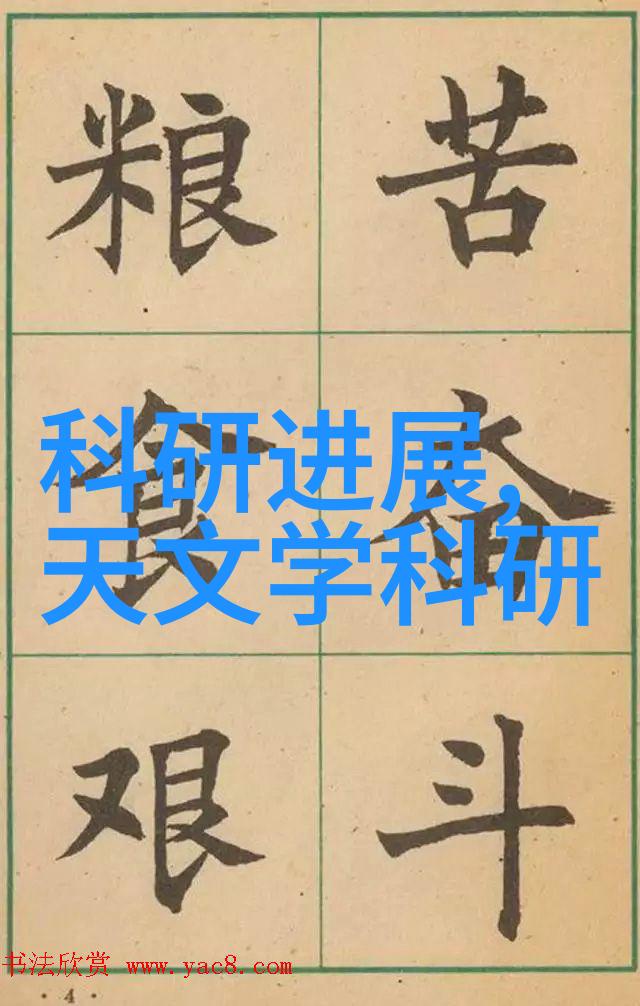 粮 苦
食 奋
艰 斗
科研进展,
天文学科研
书法欣赏 www.yac8.com
· 4 ·